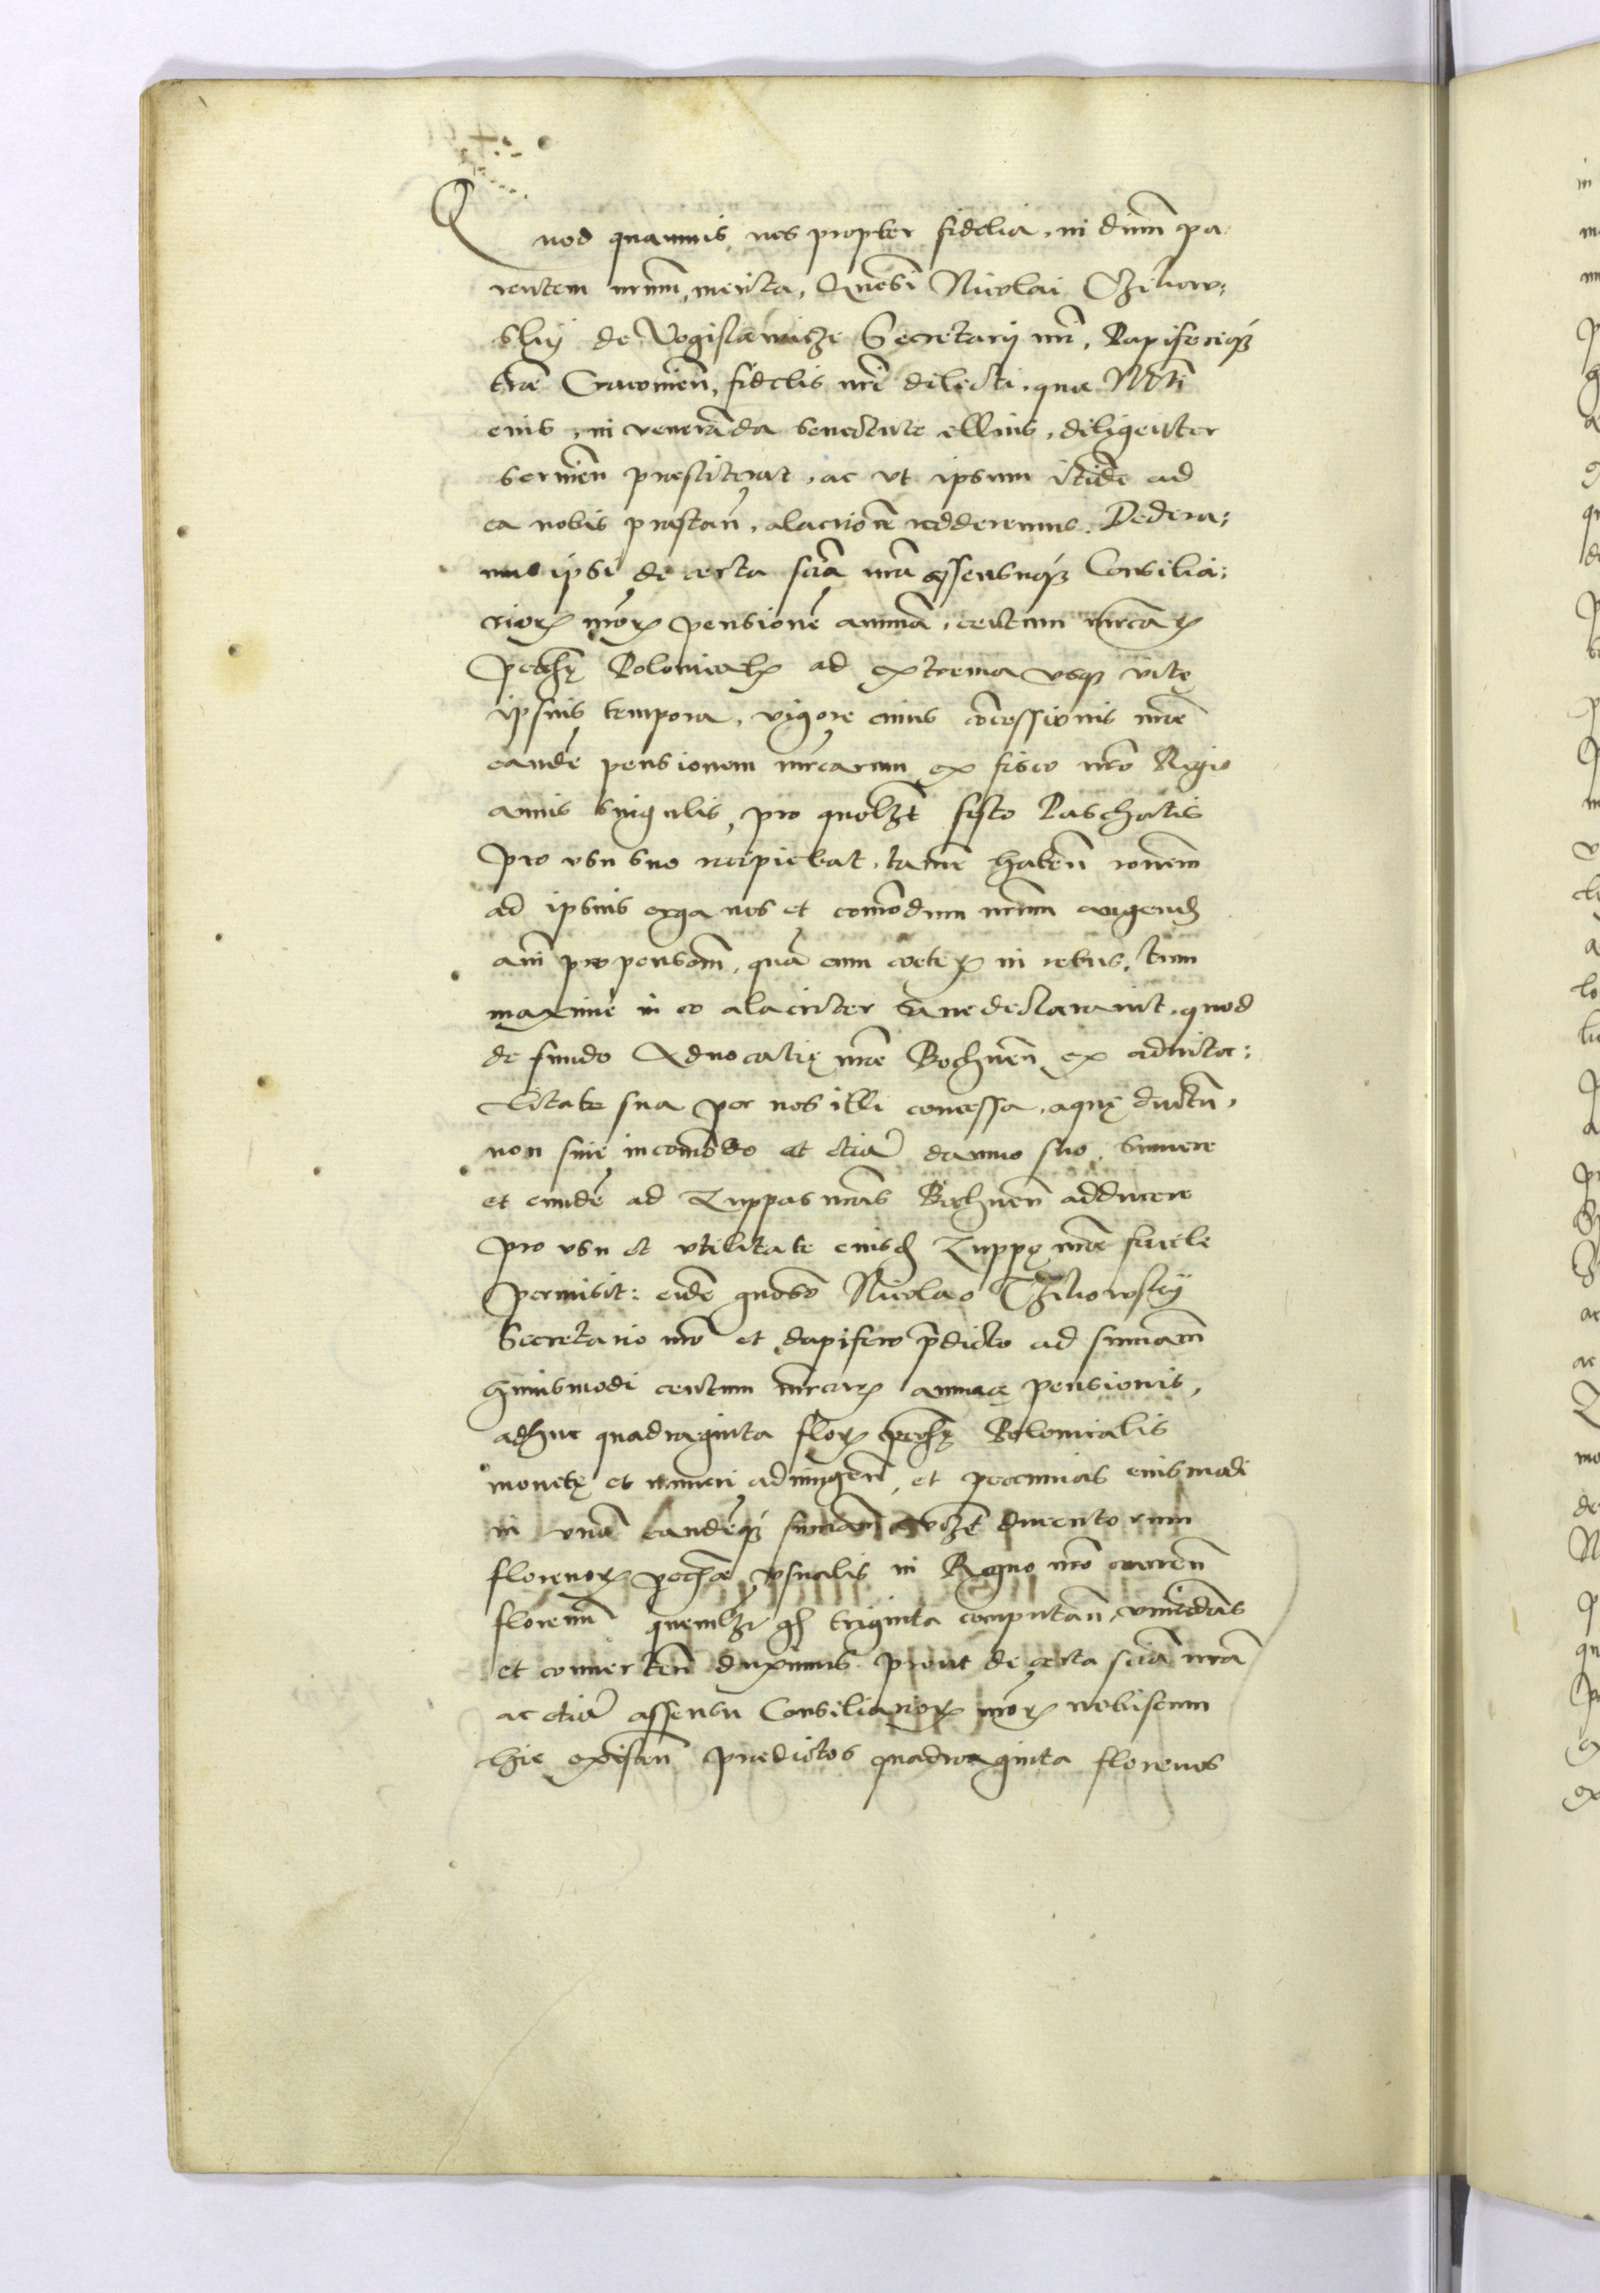 Quod quamuis nos propter fidelia, in diuum pa-
rentem nrum, merita, Gnosi Nicolai Czikow-
skij de Vogislawicze Secretarij nri, Dapiferiq3
tre Cracouien, fidelis nri dilecti, que Mti
eius, in veneranda senectute illius, diligenter
seruien prestiterat, ac vt ipsum itide ad
ea nobis prestan, alacriore redderemus. Dedera:
mus ipsi de certa scia nra assensuq3 Consilia:
rior nror pensione annua, centum mrcar
pecunie Polonicalis ad extrema vsq3 vite
ipsius tempora, vigore cuius concessionis nre
eande pensionem mrcarum ex fisco nro Regio
annis singulis, pro quolzt festo Paschatis
pro vsu suo recipiebat, tamen haben ronem
ad ipsius erga nos et comodum nrum augend
animi propensom, qua cum ceter in rebus, tum
maxime in eo alacriter sane declarauit, quod
de fundo Aduocatie nre Bochnen ex aduita:
litate sua per nos illi concessa, aque ductu,
non sine incomodo et etia damno suo, sumere
et eunde ad Zuppas nras Bochnen adducere
pro vsu et vtilitate eiusd Zuppe nre facile
permisit: eide gnoso Nicolao Czikowskij
Secretario nro et dapifero pdicto ad summam
huiusmodi centum mrcar annue pensionis,
adhuc quadraginta flor pecunie Polonicalis
monete et numeri adiungen, et pecunias eiusmodi
in vna eandeq3 summam vizt ducentorum
florenor pecunie vsualis in Regno nro curren
florenum quemlzt g triginta computan, vniedas
et conuerten duximus. prout de certa scia nra
ac etia assensu Consiliarior nror nobiscum
hic existen predictos quadraginta florenos